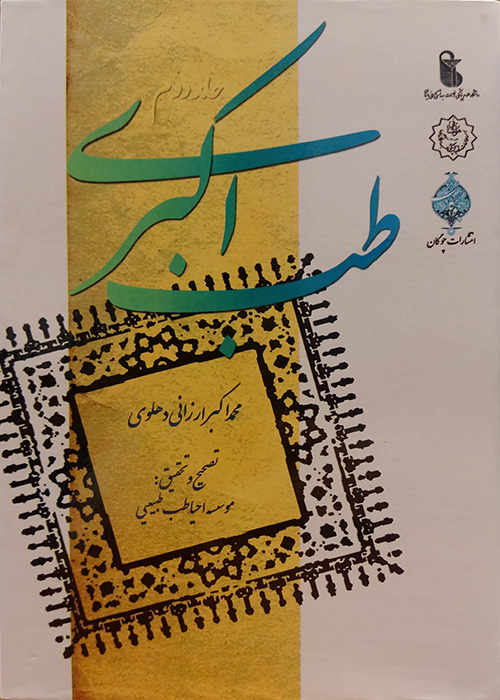 جلد دوم
طب اکبری
محمد اکبر ارزانی دهلوی
تصحیح و تحقیق:
موسسه احیا طب طبیعی
انتشارات چوگان